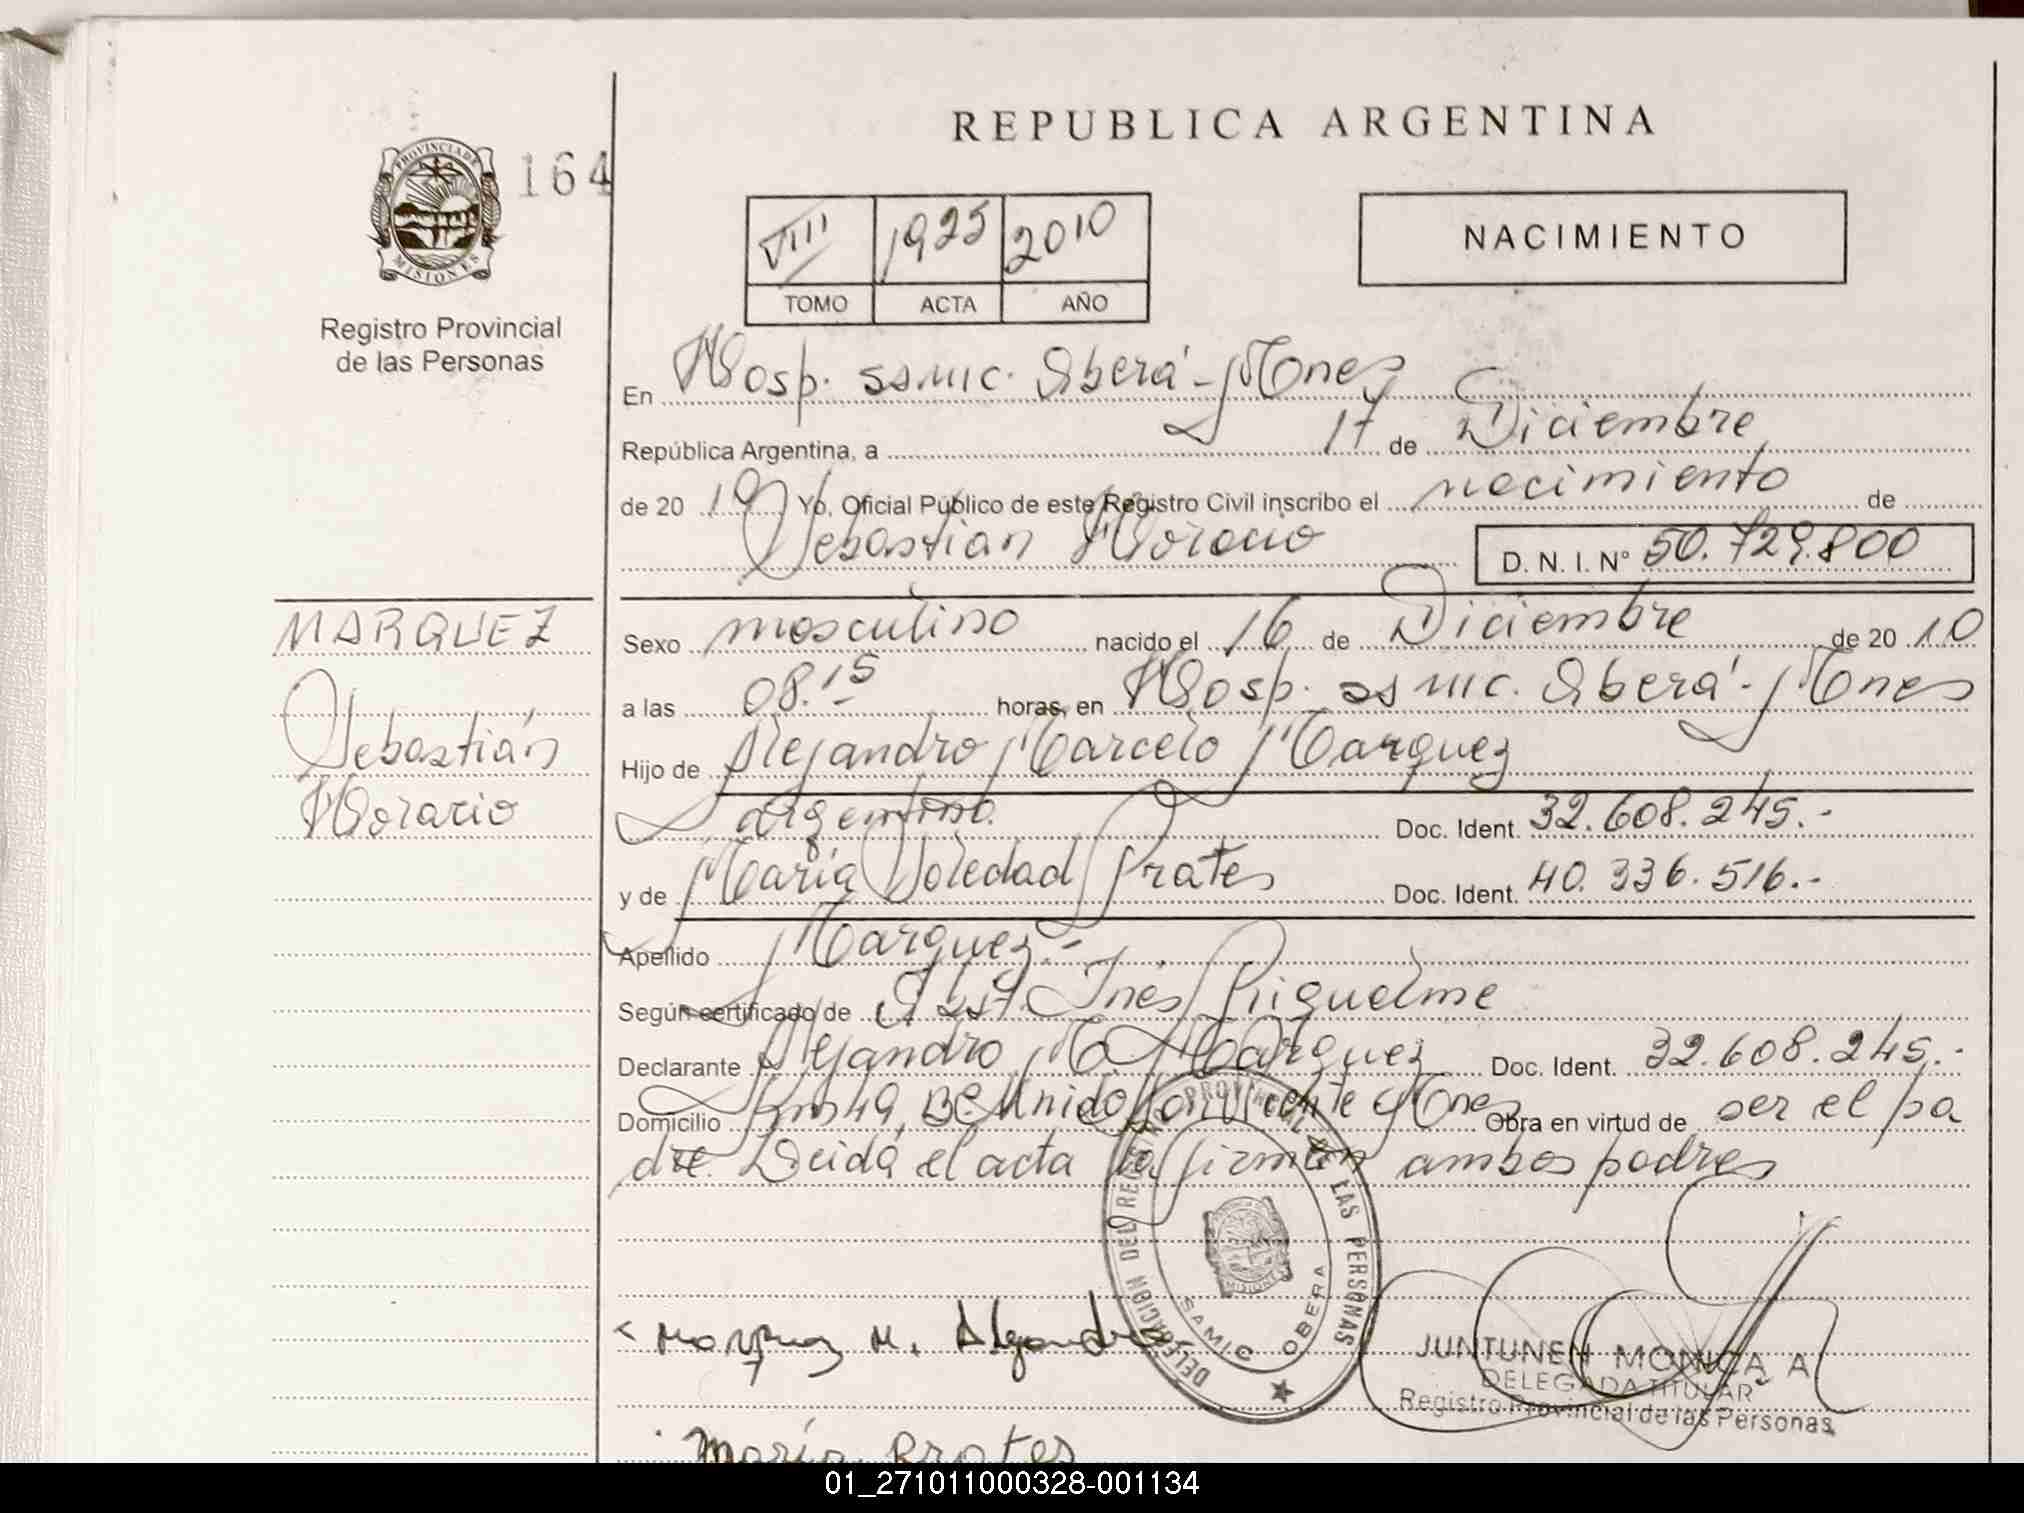 PROVINCIA DE
MISIONES
164
Registro Provincial
de las Personas
REPUBLICA ARGENTINA
VIII 1925 2010
TOMO ACTA AÑO
NACIMIENTO
En Hosp. samic. Oberá - Mones
República Argentina, a 17 de Diciembre
de 20 10 Yo, Oficial Público de este Registro Civil inscribo el nacimiento de
Sebastián Horacio D. N. I. N° 50.729.800
MARQUEZ
Sebastián
Horacio
Sexo masculino nacido el 16 de Diciembre de 20 10
a las 08.15 horas, en Hosp. samic. Oberá - Mones
Hijo de Alejandro Marcelo Marquez
argentino. Doc. Ident. 32.608.245.-
y de María Soledad Prates Doc. Ident. 40.336.516.-
Apellido Marquez.-
Según certificado de Obst. Inés Riquelme
Declarante Alejandro M. Marquez Doc. Ident. 32.608.245.-
Domicilio Km 49, Bº Unido San Vicente Mones Obra en virtud de ser el pa
dre. Leida el acta la firman ambos padres
DELEGACION DEL REGISTRO PROVINCIAL DE LAS PERSONAS
MISIONES
SAMIC OBERA
Marquez M. Alejandro
JUNTUNEN MONICA A
DELEGADA TITULAR
Registro Provincial de las Personas
María Prates
01_271011000328-001134